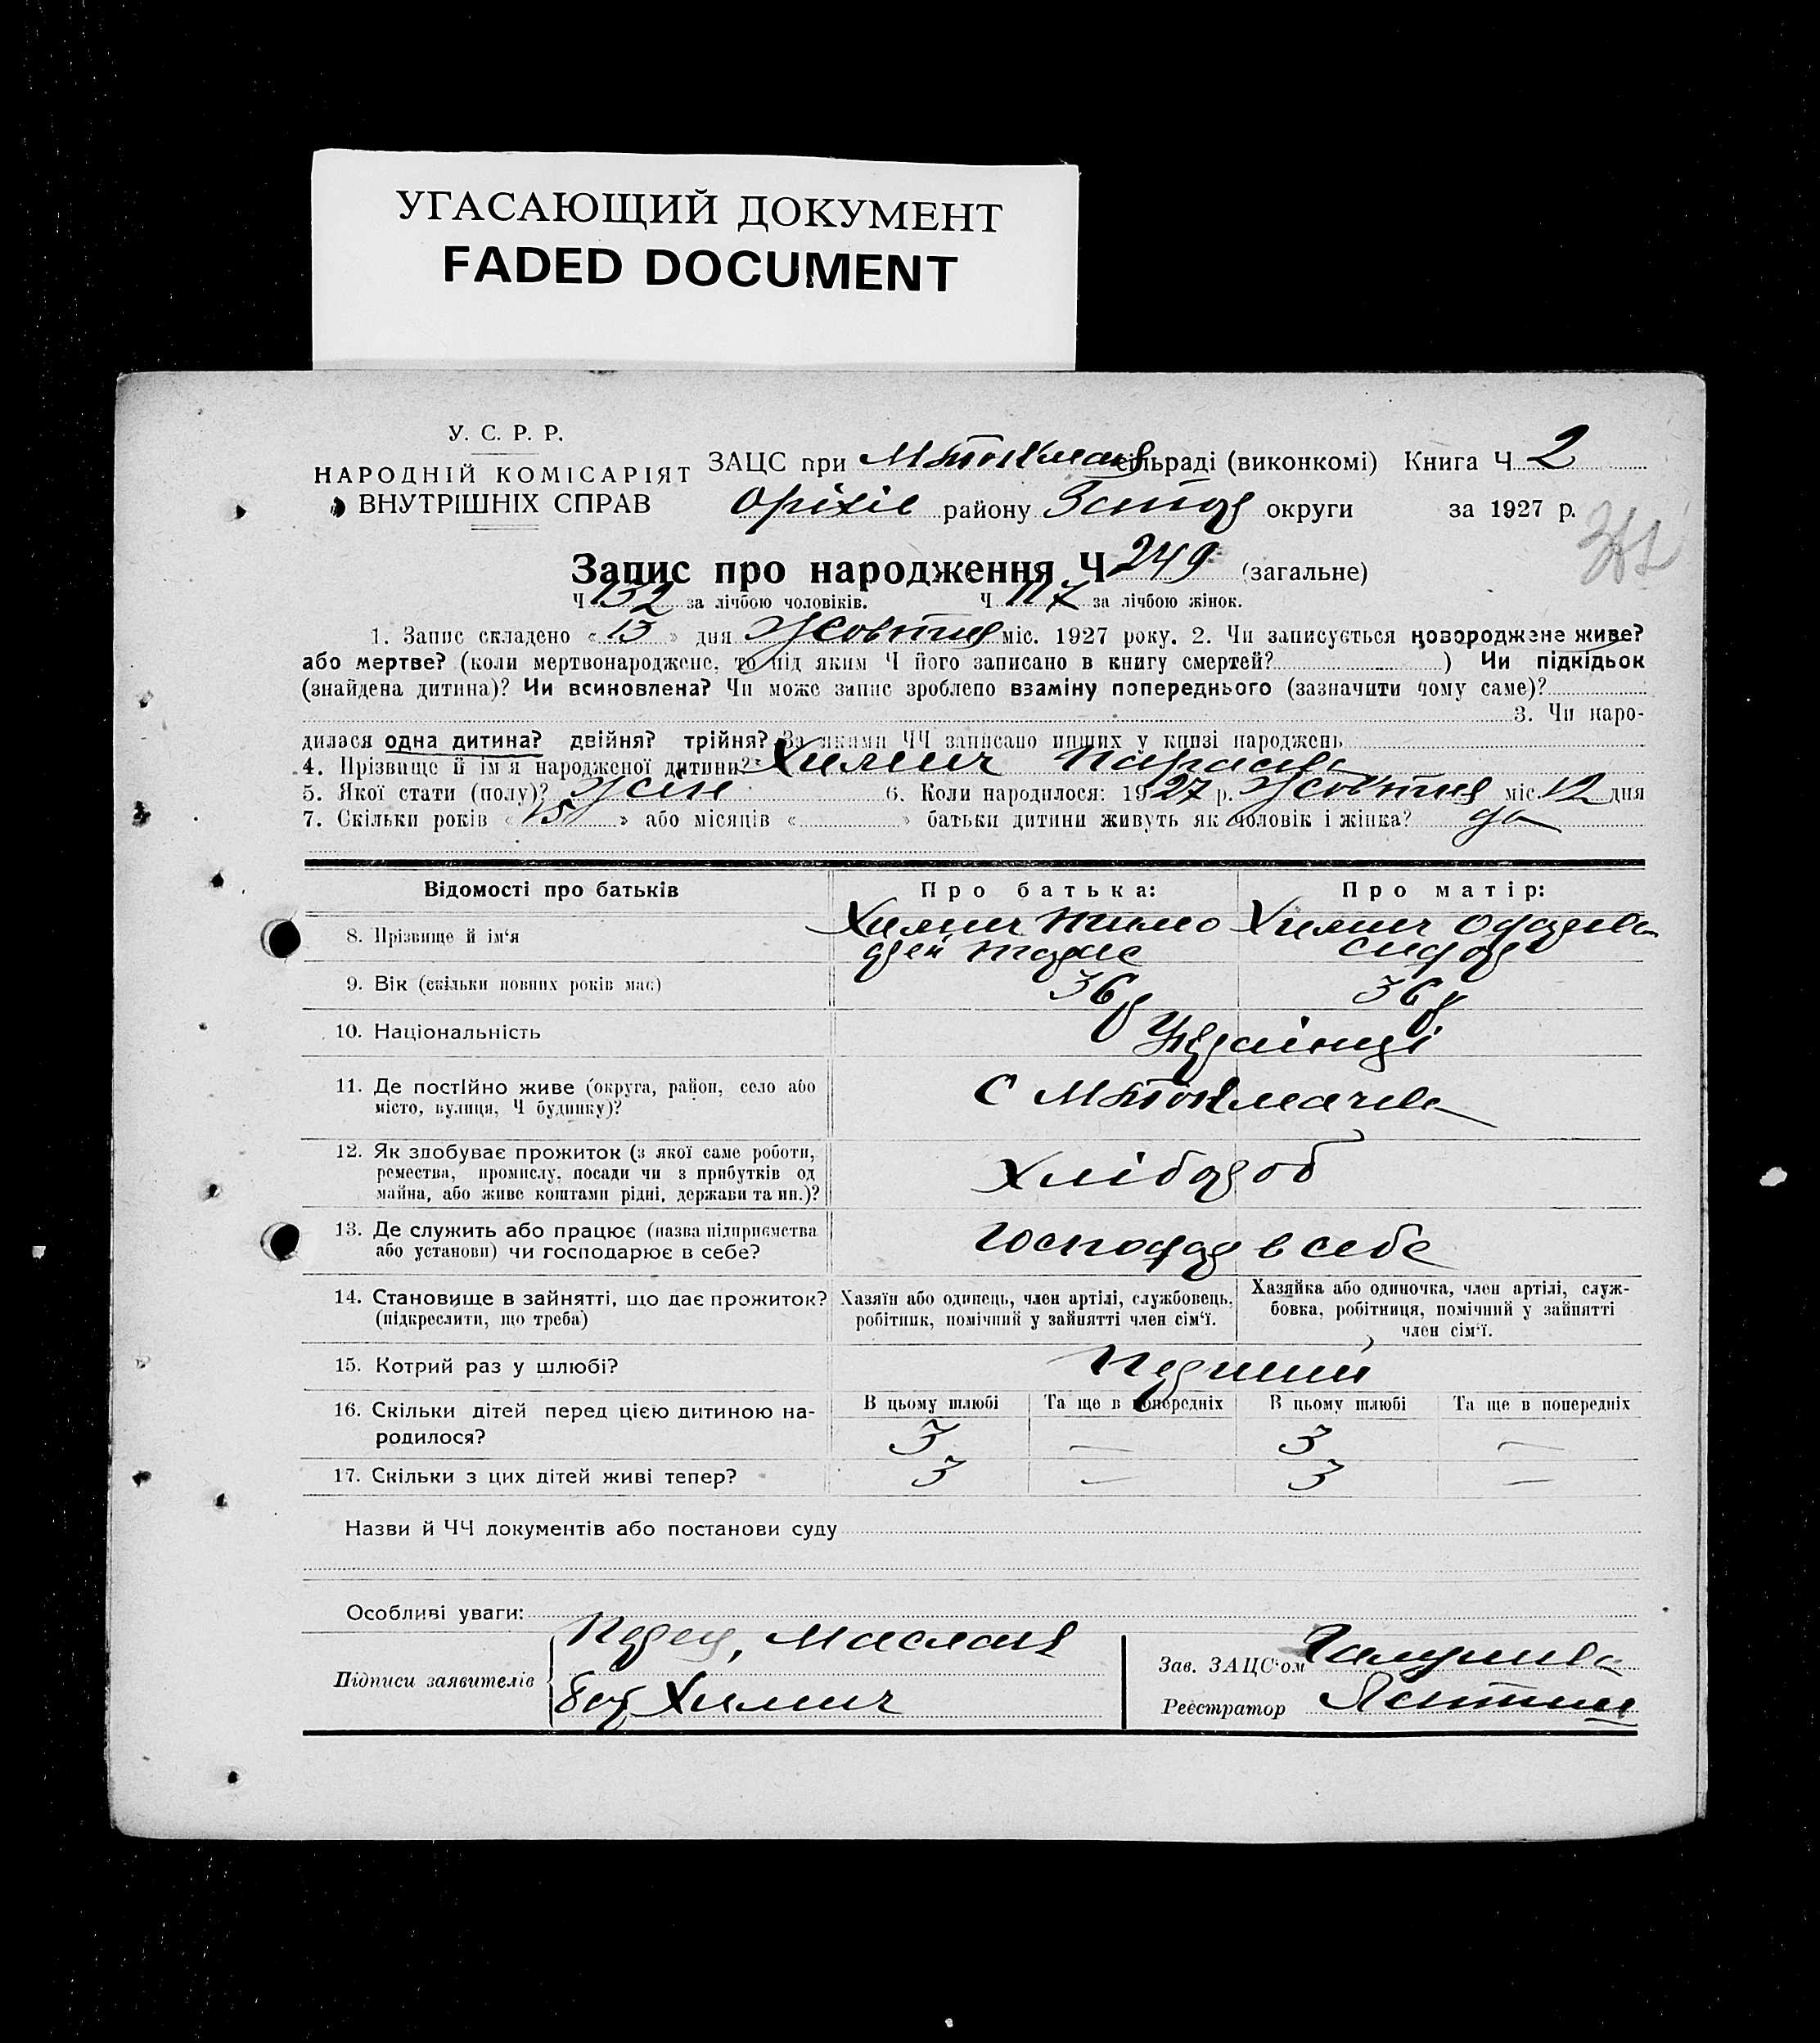 УГАСАЮЩИЙ ДОКУМЕНТ
FADED DOCUMENT
У. С. Р. Р.
НАРОДНІЙ КОМІСАРІЯТ
ВНУТРІШНІХ СПРАВ
ЗАЦС при М Токмач сільраді (виконкомі) Книга Ч 2
Оріхів району Запор округи за 1927 р.
Запис про народження Ч 249 (загальне)
Ч 132 за лічбою чоловіків. Ч 117 за лічбою жінок.
1. Запис складено « 13 » дня Жовтня міс. 1927 року. 2. Чи записується новороджене живе?
або мертве? (коли мертвонароджене, то під яким Ч його записано в книгу смертей? ) Чи підкідьок
(знайдена дитина)? Чи всиновлена? Чи може запис зроблено взаміну попереднього (зазначити чому саме)?
3. Чи наро-
дилася одна дитина? двійня? трійня? За якими ЧЧ записано инших у книзі народжень
4. Прізвище й ім'я народженої дитини? Химич Параска
5. Якої стати (полу)? Жін 6. Коли народилося: 1927 р. Жовтня міс. 12 дня
7. Скільки років « 15 » або місяців « » батьки дитини живуть як чоловік і жінка? да
Відомості про батьків Про батька: Про матір:
8. Прізвище й ім'я Химич Тимо Химич
фей
9. Вік (скільки повних років має) 36 р 36 р
10. Національність Українці
11. Де постійно живе (округа, район, село або
місто, вулиця, Ч будинку)? С М Токмачка
12. Як здобуває прожиток (з якої саме роботи,
ремества, промислу, посади чи з прибутків од
майна, або живе коштами рідні, держави та ин.)? Хлібороб
13. Де служить або працює (назва підприємства
або установи) чи господарює в себе? Господар в себе
14. Становище в зайнятті, що дає прожиток?
(підкреслити, що треба)
Хазяїн або одинець, член артілі, службовець,
робітник, помічний у зайнятті член сім'ї.
Хазяйка або одиночка, член артілі, служ-
бовка, робітниця, помічний у зайнятті
член сім'ї.
15. Котрий раз у шлюбі? Перший
В цьому шлюбі Та ще в попередніх В цьому шлюбі Та ще в попередніх
16. Скільки дітей перед цією дитиною на-
родилося? 3 — 3 —
17. Скільки з цих дітей живі тепер? 3 — 3 —
Назви й ЧЧ документів або постанови суду
Особливі уваги:
Підписи заявителів
Химич
Зав. ЗАЦС'ом
Реєстратор